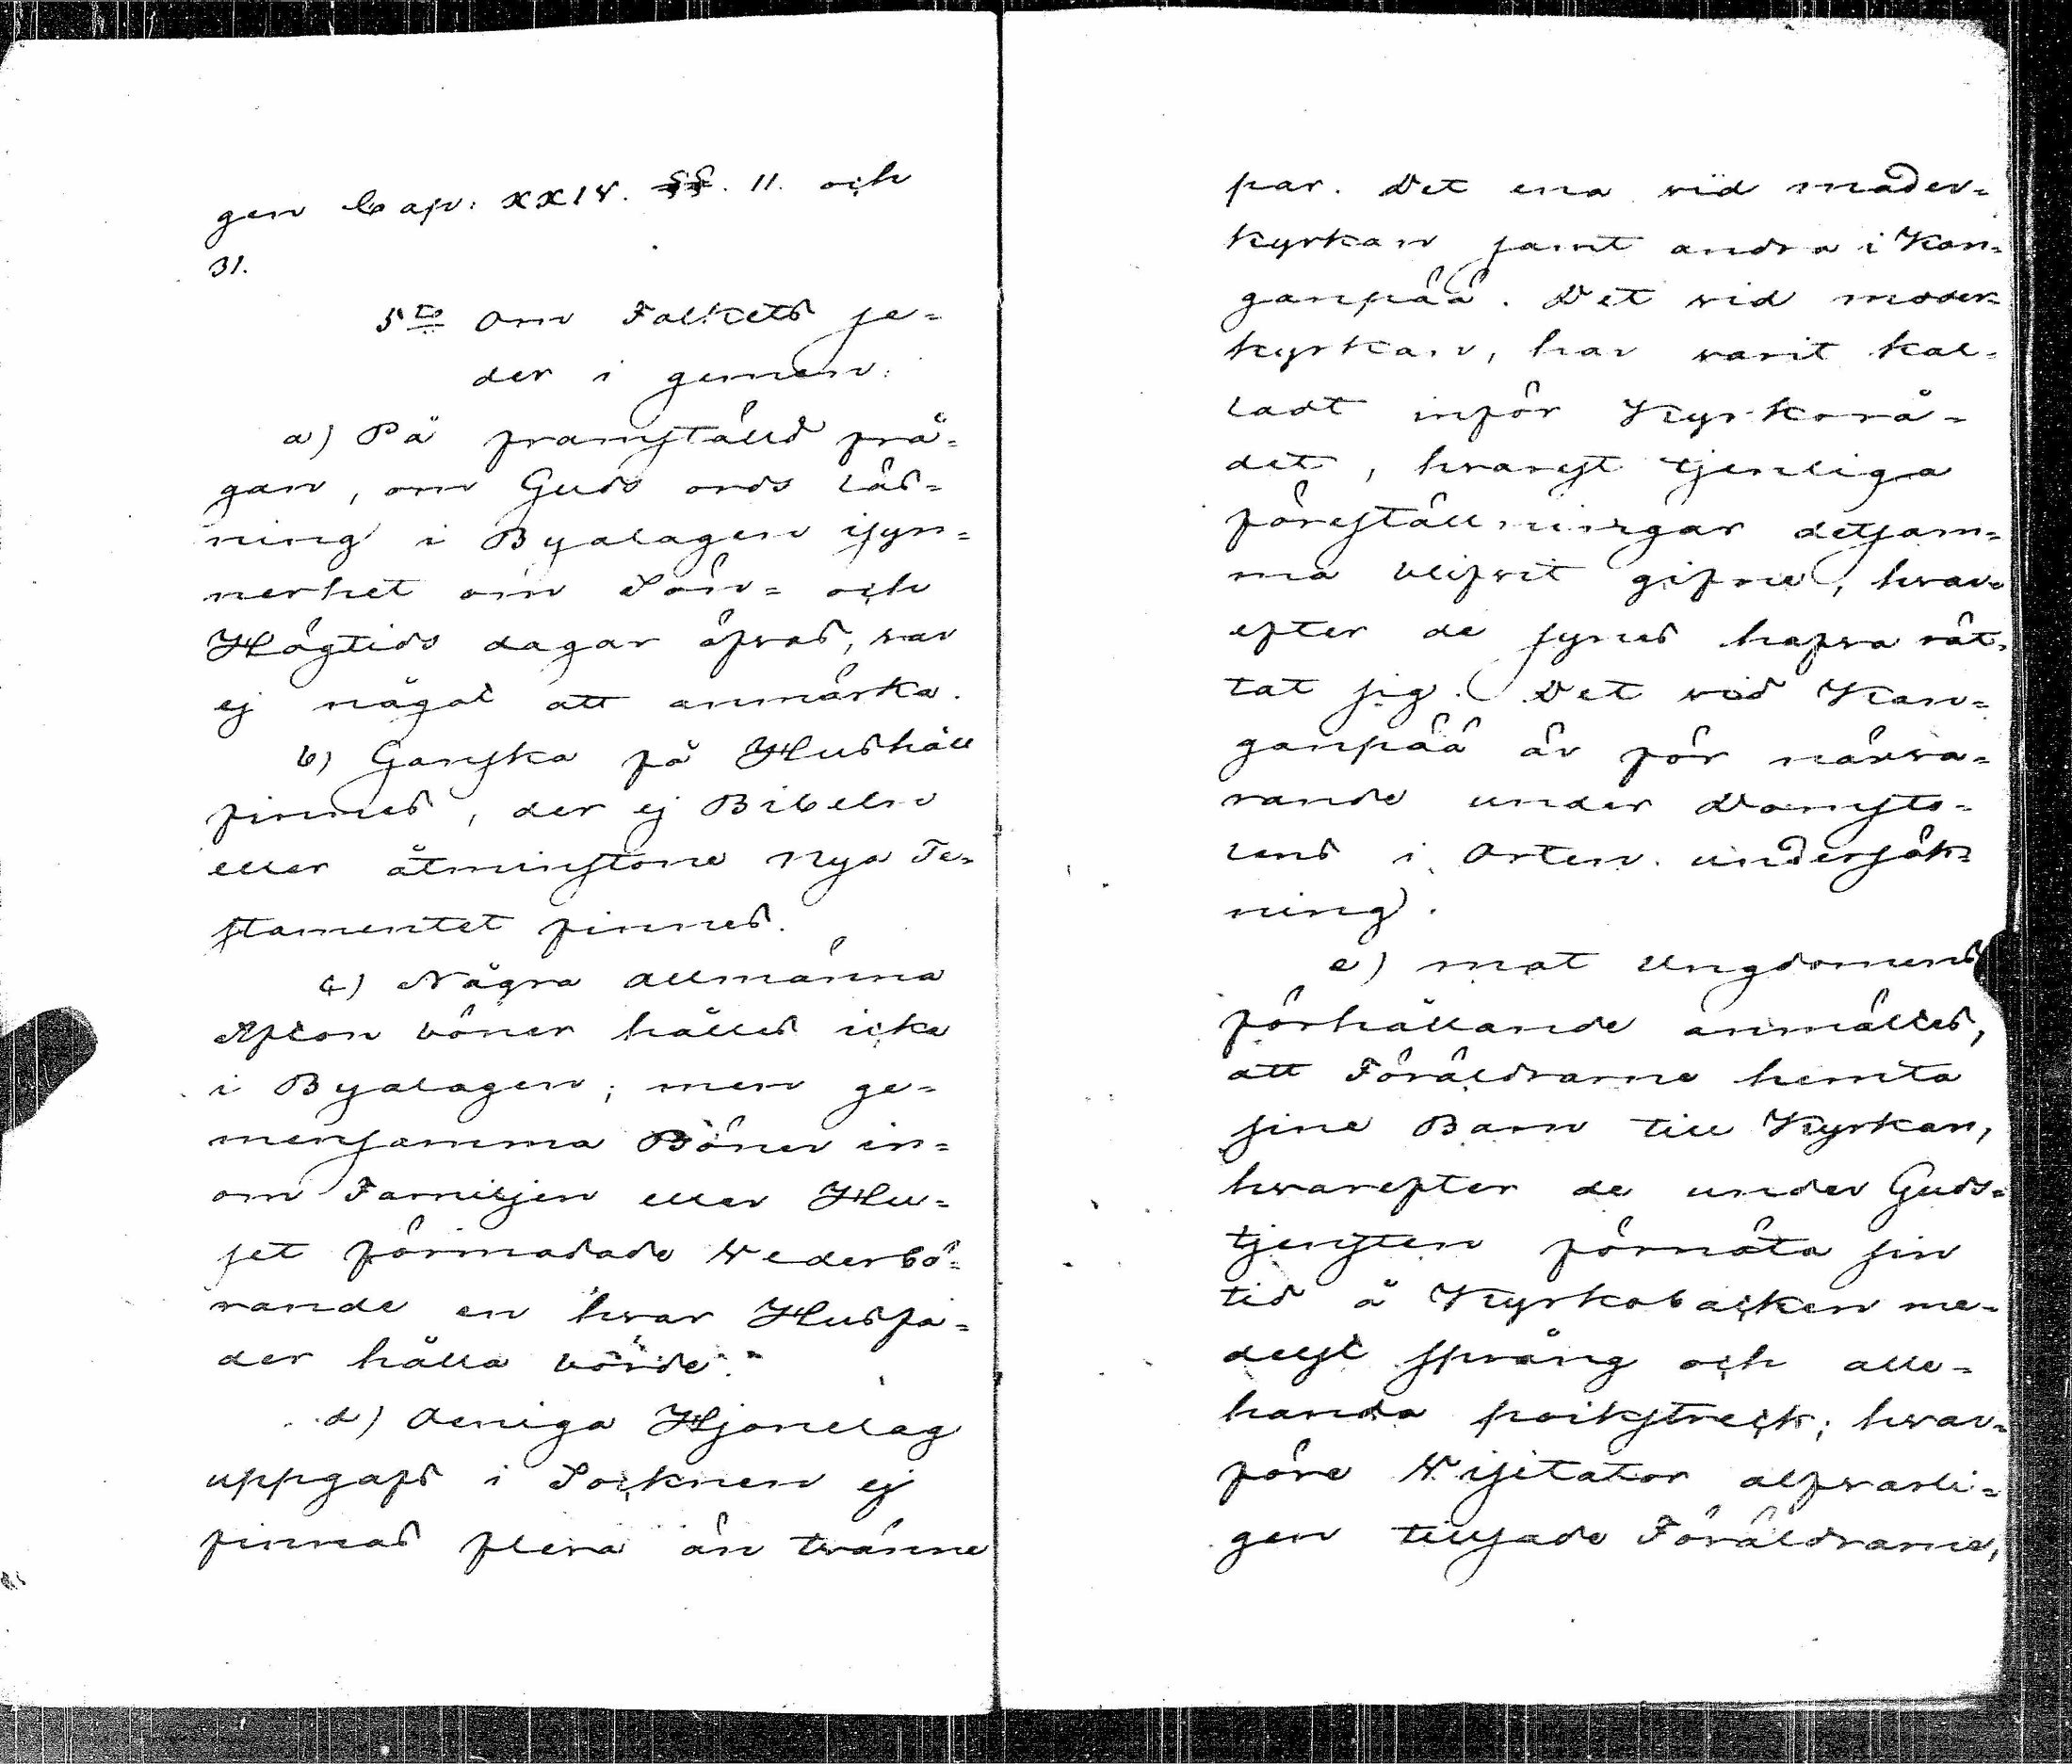 gen Cap: XXIV. §§. 11. och
31.
5to Om Folkets se-
der i gemen:
a) På framställd frå-
gan, om Guds ords läs-
ning i Byalagen isyn-
nerhet om Sön- och
Högtids dagar öfvas, var
ej något att anmärka.
b) Ganska få Hushåll
finnes, der ej Bibeln
eller åtminstone Nya Te-
stamentet finnes.
c) Några allmänna
Afton böner hålles icke
i Byalagen; men ge-
mensamma Böner in-
om Familjen eller Hu-
set förmodade Vederbö-
rande en hvar Husfa-
der hålla börde.
d) Oeniga Hjonelag
uppgafs i Socknen ej
finnas flera än tvänne
par. Det ena vid moder-
kyrkan samt andra i Kan-
ganpää. Det vid moder-
kyrkan, har varit kal-
ladt inför Kyrkorå-
det, hvarest tjenliga
föreställningar detsam-
ma blifvit gifne, hvar-
efter de synes hafva rät-
tat sig. Det vid Kan-
ganpää är för närva-
rande under Domsto-
lens i Orten undersök-
ning.
e) mot Ungdomens
förhållande anmältes,
att Föräldrarne hemta
sine Barn till Kyrkan,
hvarefter de under Guds-
tjensten förnöta sin
tid å Kyrkobacken me-
delst språng och alle-
handa poikstreck; hvar-
före Visitator alfvarli-
gen tillsade Föräldrarne,